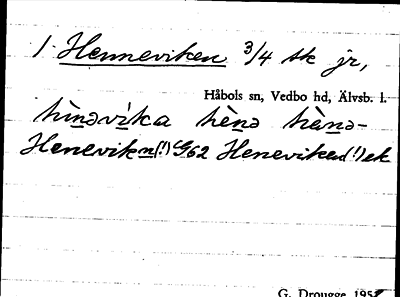 1. Henneviken 3/4 sk jr,
Håbols sn, Vedbo hd, Älvsb. l.
hìnəvìka hènə hènə-
Henevikn(!) GS62 Heneviken(!) ek
G. Drougge 1951